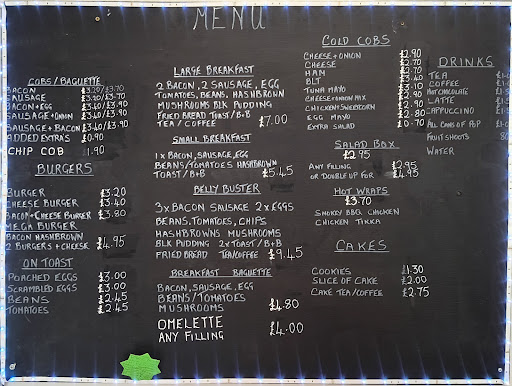 MENU
COBS/BAGUETTE
BACON £3.20/£3.70
SAUSAGE £3.20/£3.70
BACON+EGG £3.40/£3.90
SAUSAGE+ONION £3.40/£3.90
SAUSAGE+BACON £3.40/£3.90
ADDED EXTRA'S £0.90
CHIP COB 1.90
BURGERS
BURGER £3.20
CHEESE BURGER £3.40
BACON+CHEESE BURGER £3.80
MEGA BURGER
BACON HASHBROWN
2 BURGERS+CHEESE £4.95
ON TOAST
POACHED EGGS £3.00
SCRAMBLED EGGS £3.00
BEANS £2.45
TOMATOES £2.45
LARGE BREAKFAST
2 BACON, 2 SAUSAGE, EGG
TOMATOES, BEANS, HASHBROWN
MUSHROOMS BLK PUDDING
FRIED BREAD TOAST/B+B
TEA/COFFEE £7.00
SMALL BREAKFAST
1x BACON, SAUSAGE, EGG
BEANS/TOMATOES HASHBROWN
TOAST/B+B £5.45
BELLY BUSTER
3x BACON SAUSAGE 2x EGGS
BEANS, TOMATOES, CHIPS
HASHBROWNS MUSHROOMS
BLK PUDDING 2x TOAST/B+B
FRIED BREAD TEA/COFFEE £9.45
BREAKFAST BAGUETTE
BACON, SAUSAGE, EGG
BEANS/TOMATOES
MUSHROOMS £4.80
OMELETTE
ANY FILLING £4.00
COLD COBS
CHEESE+ONION £2.90
CHEESE £2.70
HAM £2.70
BLT £3.40
TUNA MAYO
CHEESE+ONION MIX
CHICKEN+SWEETCORN £2.90
EGG MAYO £2.80
EXTRA SALAD £0.70
SALAD BOX
£2.95
ANY FILLING £2.95
OR DOUBLE UP FOR £4.95
HOT WRAPS
£3.70
SMOKEY BBQ CHICKEN
CHICKEN TIKKA
CAKES
COOKIES £1.30
SLICE OF CAKE £2.00
CAKE TEA/COFFEE £2.75
DRINKS
TEA
COFFEE
HOT CHOCOLATE
LATTE
CAPPUCCINO
ALL CANS OF POP
FRUIT SHOOTS
WATER